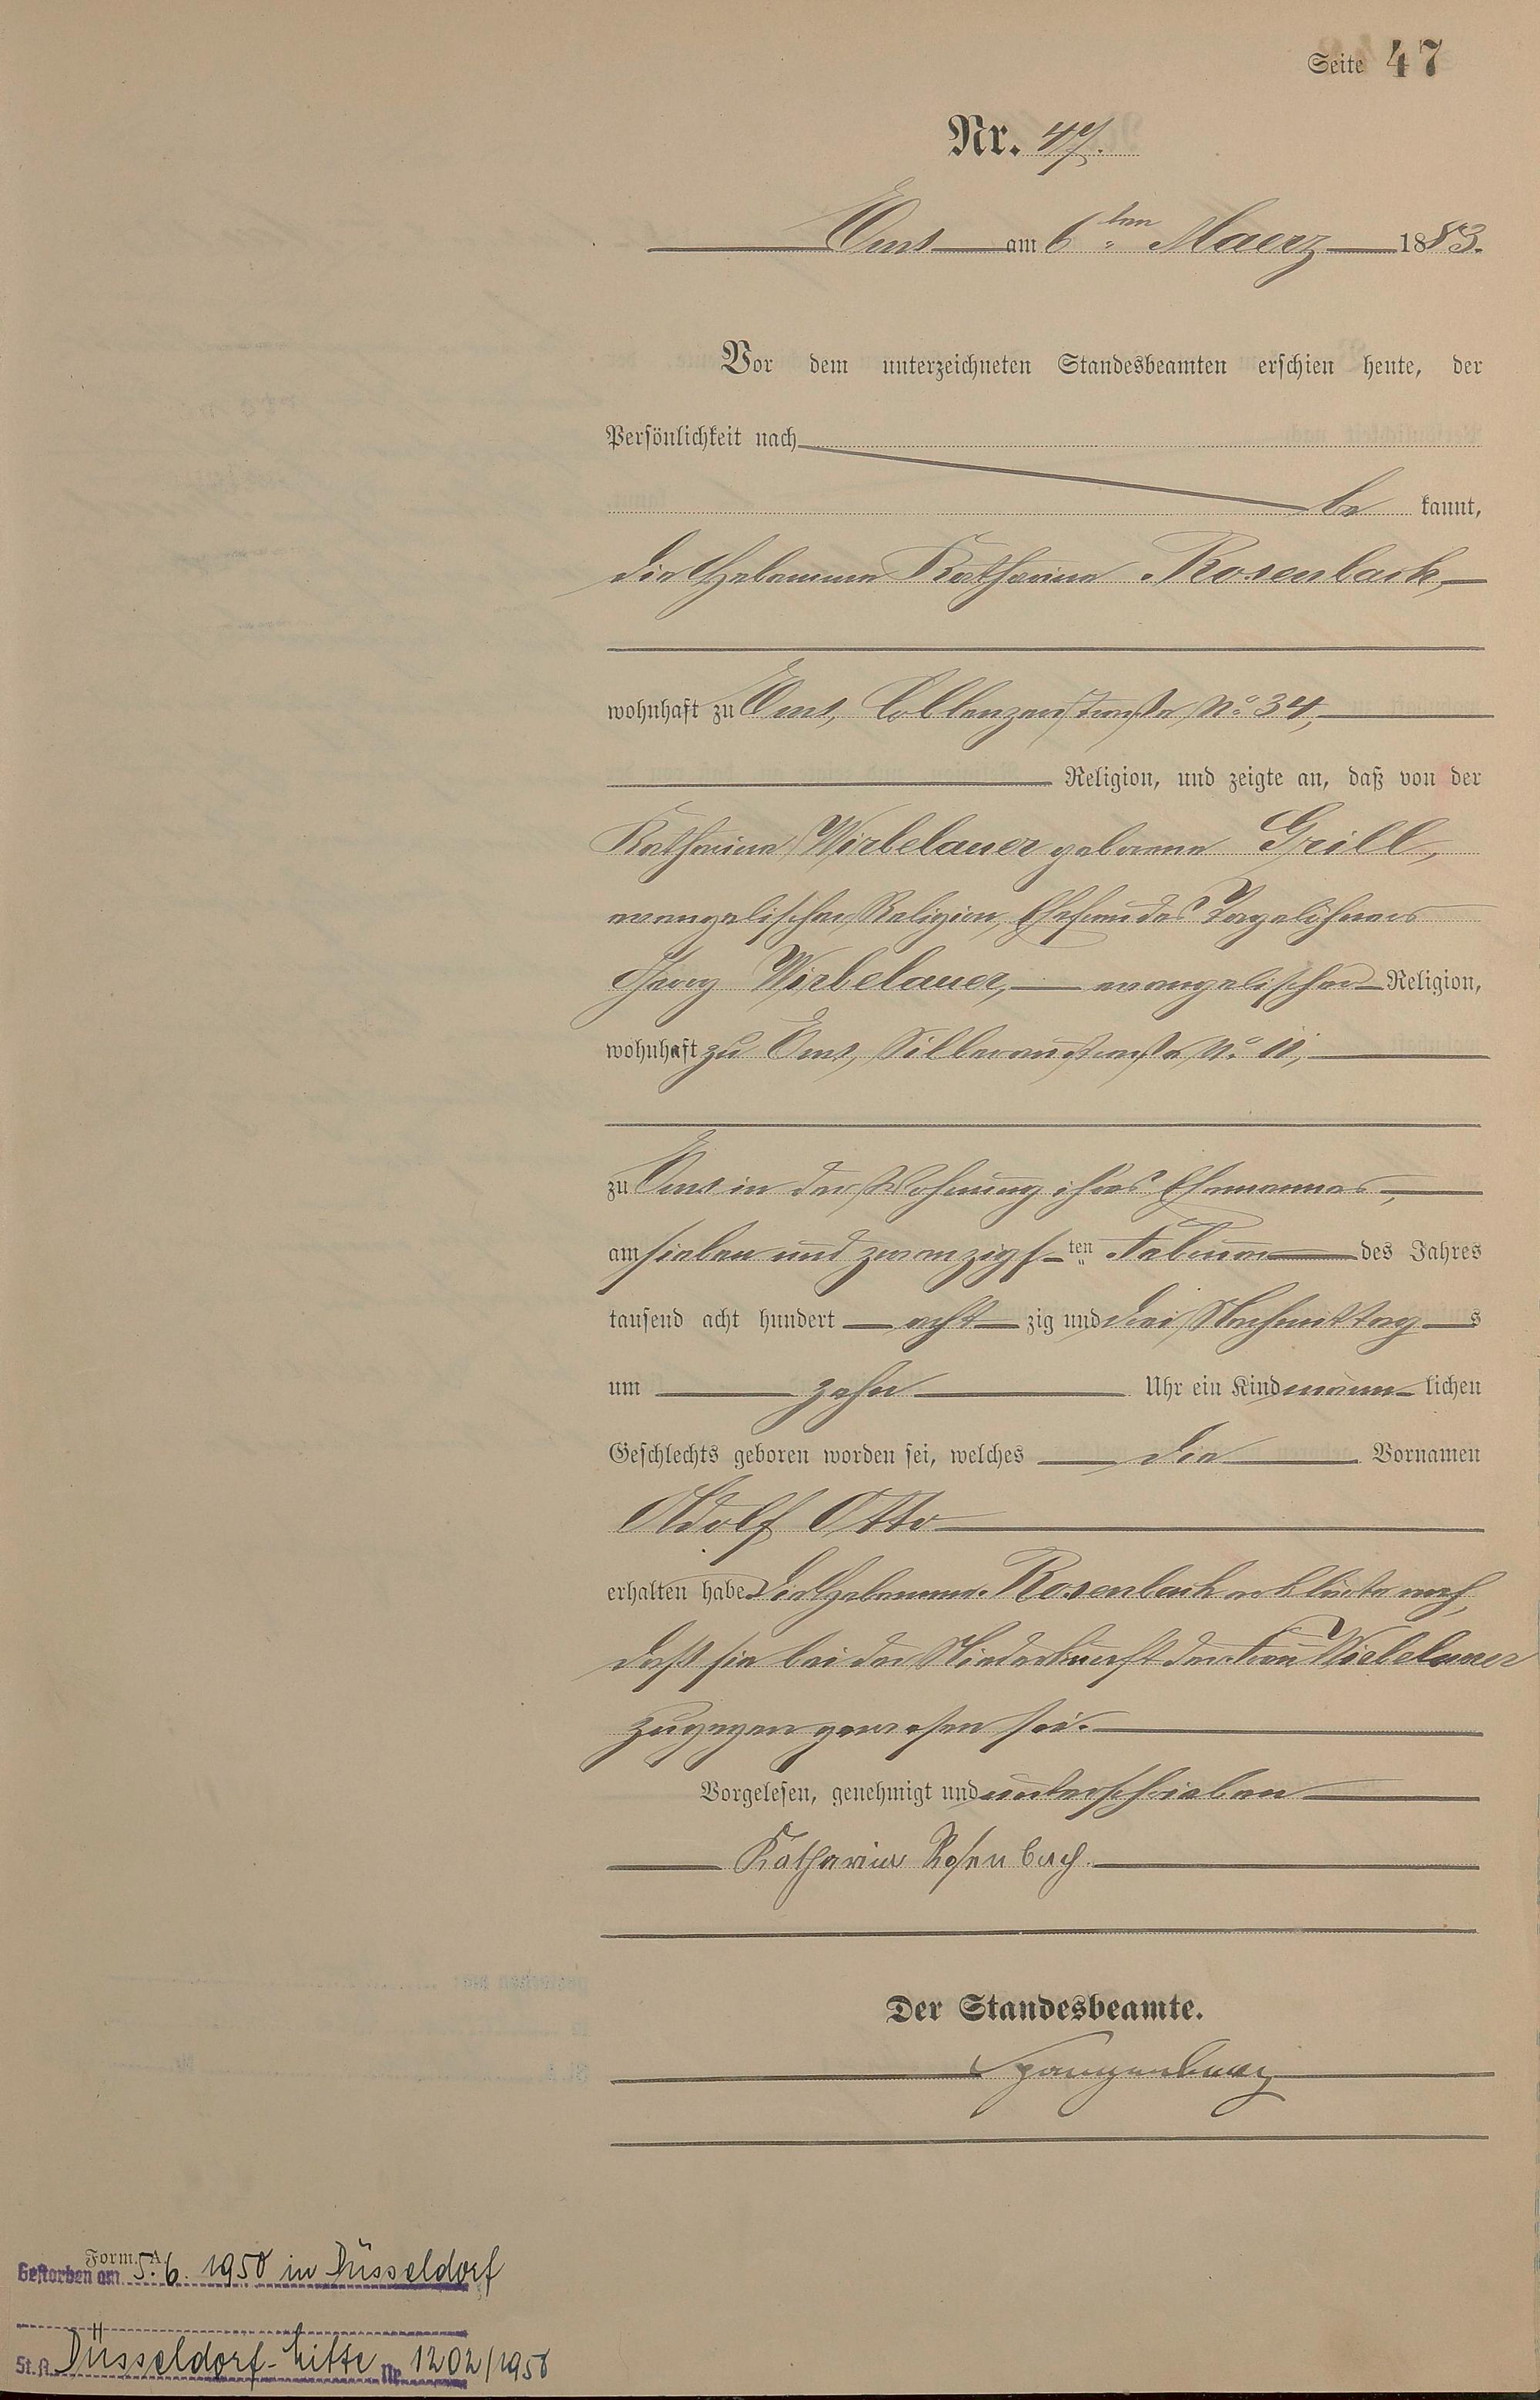 Seite 47
Nr. 47.
Ems am 6ten Maerz 1883.
Vor dem unterzeichneten Standesbeamten erschien heute, der
Persönlichkeit nach
be kannt,
die Hebamme Katharina Rosenbach,
wohnhaft zu Ems, Coblenzerstraße No 34,
Religion, und zeigte an, daß von der
Katharina Wirbelauer geborene Grill,
evangelischer Religion, Ehefrau des Tagelöhners
Georg Wirbelauer, evangelischer Religion,
wohnhaft zu Ems, Silberaustraße No 11,
zu Ems in der Wohnung ihres Ehemannes,
am sieben und zwanzigsten Februar des Jahres
tausend acht hundert acht zig und drei Nachmittags
um zehn Uhr ein Kind männlichen
Geschlechts geboren worden sei, welches die Vornamen
Adolf Otto
erhalten habe. Die Hebamme Rosenbach erklärte noch,
daß sie bei der Niederkunft der Frau Wirbelauer
zugegen gewesen sei.
Vorgelesen, genehmigt und unterschrieben
Katharina Rosenbach.
Der Standesbeamte.
Spangenberg
Form. A.
Gestorben am 5.6. 1950 in Düsseldorf
St. A. Düsseldorf-Mitte Nr. 1202/1950